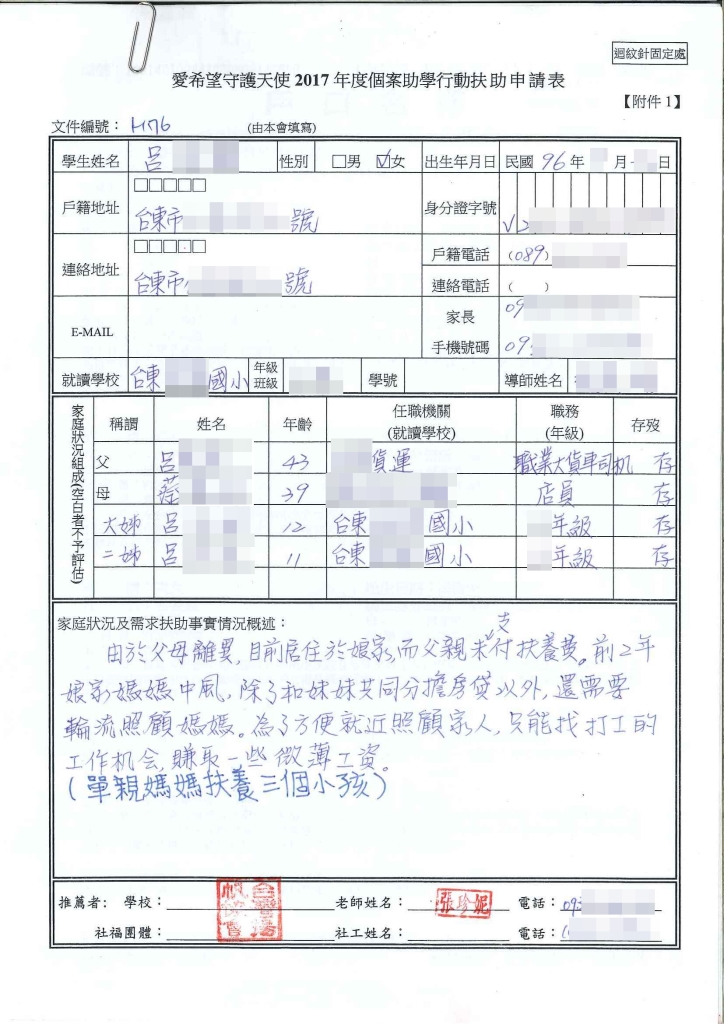 迴紋針固定處
愛希望守護天使 2017 年度個案助學行動扶助申請表
【附件 1】
文件編號： H176 (由本會填寫)
學生姓名 呂 性別 □男 ☑女 出生年月日 民國 96 年 月 日
戶籍地址 □□□□□ 台東市 號 身分證字號 V2
連絡地址 □□□□□ 台東市 號 戶籍電話 (089)
連絡電話 ( )
E-MAIL 家長 手機號碼 09
09
就讀學校 台東 國小 年級 班級 學號 導師姓名
家庭狀況組成(空白者不予評估)
稱謂 姓名 年齡 任職機關 (就讀學校) 職務 (年級) 存歿
父 呂 43 貨運 職業大貨車司机 存
母 39 店員 存
大姊 呂 12 台東 國小 年級 存
二姊 呂 11 台東 國小 年級 存
家庭狀況及需求扶助事實情況概述：
由於父母離異,目前居住於娘家,而父親未支付扶養費。前2年
娘家媽媽中風,除了和妹妹共同分擔房貸以外,還需要
輪流照顧媽媽。為了方便就近照顧家人,只能找打工的
工作机会,賺取一些微薄工資。
(單親媽媽扶養三個小孩)
推薦者： 學校： 老師姓名： 張珍妮 電話： 09
社福團體： 社工姓名： 電話： (